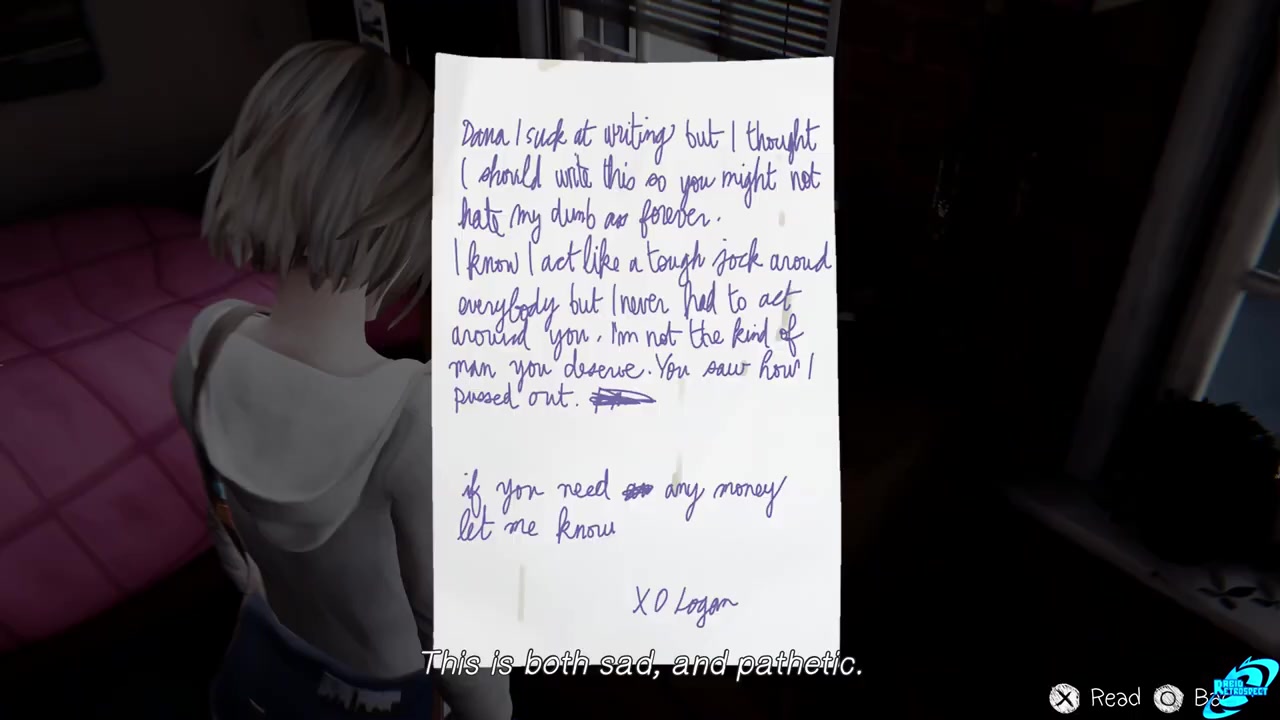 Dana I suck at writing but I thought
I should write this so you might not
hate my dumb ass forever.
I know I act like a tough jock aroud
everybody but I never had to act
around you. I'm not the kind of
man you deserve. You saw how I
pussed out.
if you need any money
let me know
XO Logan
This is both sad, and pathetic.
Read
DROID
RETROSPECT